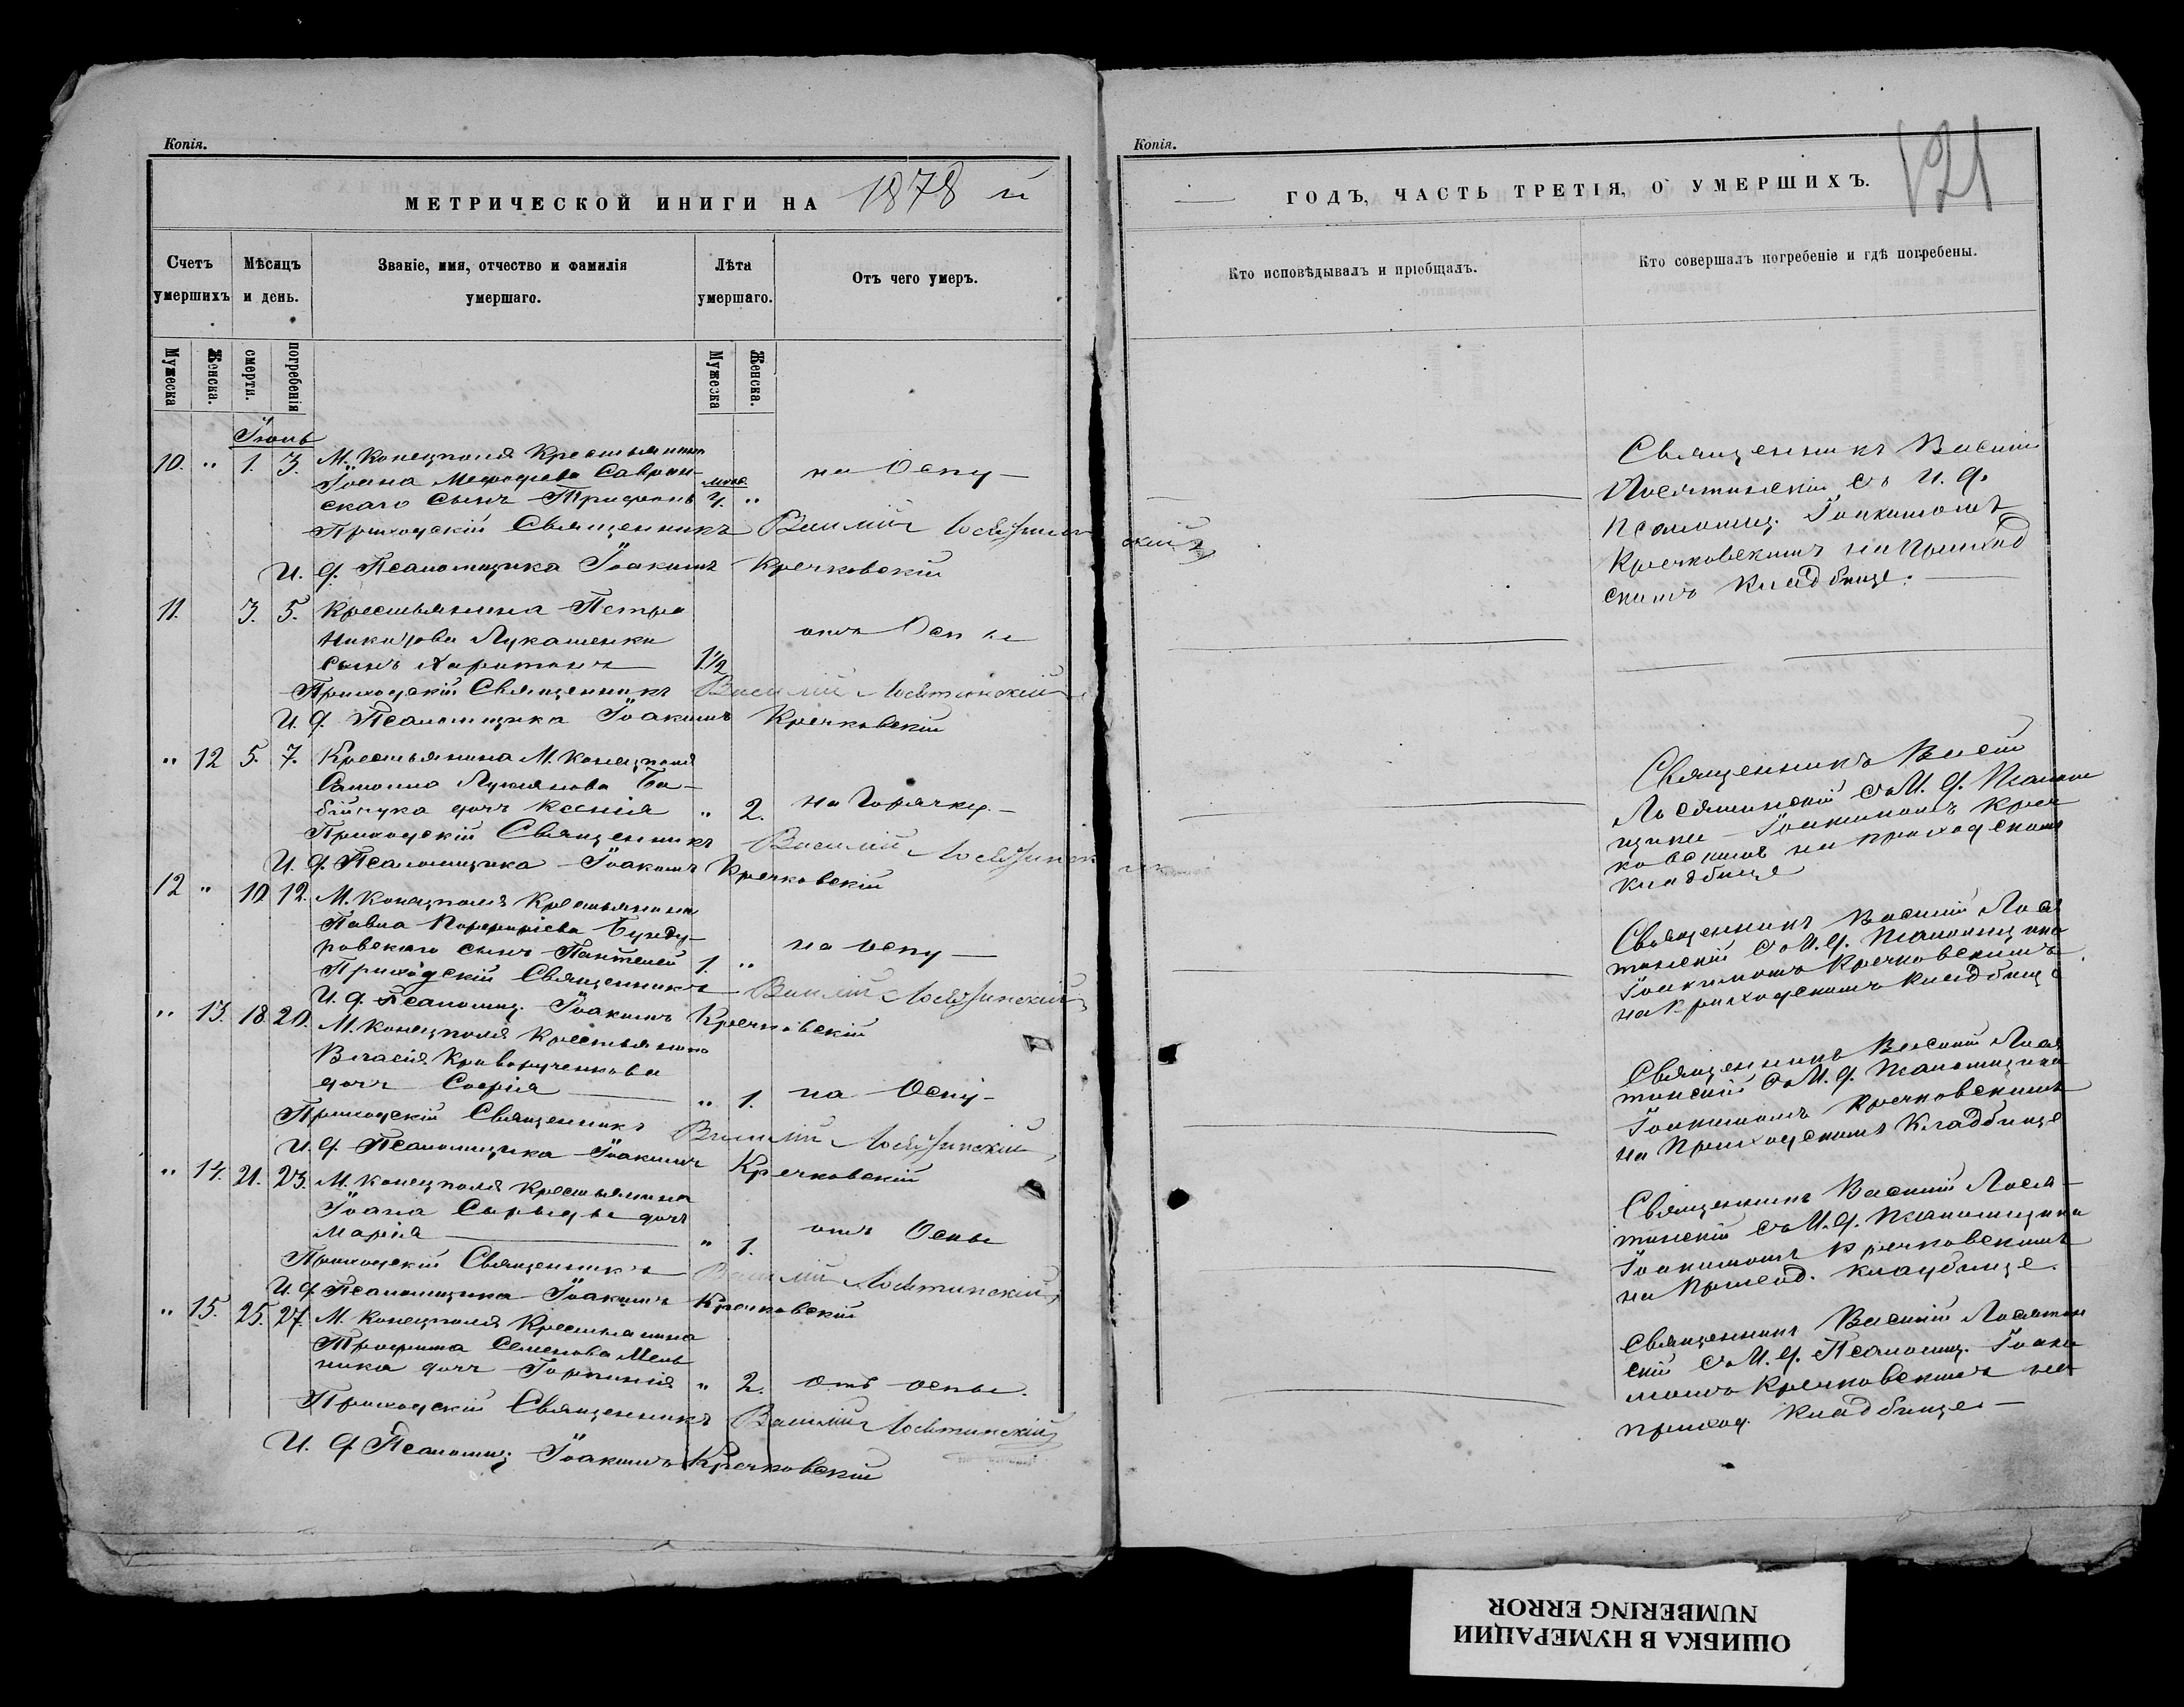 Копія.
МЕТРИЧЕСКОЙ ИНИГИ НА 1878 й
Счетъ умершихъ
Мѣсяцъ и день.
Званіе, имя, отчество и фамилія умершаго.
Лѣта умершаго.
Отъ чего умеръ.
Мужеска
Женска.
смерти.
погребенія
Мужеска
Женска.
Іюнь
10. " 1. 3. М. Конецполя Крестьянина
Іоана Мефодіева Савран-
скаго сынъ Трифонъ " на Оспу
Приходскій Священникъ Василій Лосятинскій
И. д. Псаломщика Іоакимъ Кречковскій
11. 3. 5. Крестьянина Петра
Никитова Лукашенки
сынъ Харитонъ 1 1/2 отъ Оспы
Приходскій Священникъ Василій Лосятинскій
И. д. Псаломщика Іоакимъ Кречковскій
" 12 5. 7. Крестьянина М. Конецполя
Лукианова Ба-
бійчука дочь Ксенія " 2. на Горячку.
Приходскій Священникъ Василій Лосятинскій
И. д. Псаломщика Іоакимъ Кречковскій
12 " 10. 12. М. Конецполя Крестьянина
Павла Порфиріева Бунду-
ровскаго сынъ Пантелей 1. " на оспу
Приходскій Священникъ Василій Лосятинскій
И. д. Псаломщ. Іоакимъ Кречковскій
" 13. 18. 20. М. Конецполя Крестьянина
Власія Криворученкова
дочь Софія " 1. на Оспу
Приходскій Священникъ Василій Лосятинскій
И. д. Псаломщика Іоакимъ Кречковскій
" 14. 21. 23. М. Конецполя Крестьянина
Іоана дочь
Марія " 1. отъ Оспы
Приходскій Священникъ Василій Лосятинскій
И. д. Псаломщика Іоакимъ Кречковскій
" 15. 25. 27. М. Конецполя Крестьянина
Трофима Семенова Мель
ника дочь Горпинія " 2. отъ оспы.
Приходскій Священникъ Василій Лосятинскій
И. д. Псаломщ Іоакимъ Кречковскій
Копія.
121
ГОДЪ, ЧАСТЬ ТРЕТІЯ, О УМЕРШИХЪ.
Кто исповѣдывалъ и пріобщалъ.
Кто совершалъ погребеніе и гдѣ погребены.
Священникъ Василій
Лосятинскій съ И. д.
Псаломщ. Іоакимомъ
Кречковскимъ на приход
скомъ кладбище.
Священникъ Василій
Лосятинскій съ И. д. Псалом
щика Іоакимомъ Креч
ковскимъ на приходскомъ
кладбище
Священникъ Василій Лося
тинскій съ И. д. Псаломщика
Іоакимомъ Кречковскимъ
на Приходскомъ кладбище
Священникъ Василій Лося
тинскій съ И. д. Псаломщика
Іоакимомъ Кречковскимъ
на Приходскомъ Кладбище
Священникъ Василій Лося-
тинскій съ И. д. Псаломщика
Іоакимомъ Кречковскимъ
на Приход. кладбище.
Священникъ Василій Лосятин
скій съ И. д. Псаломщ. Іоаки
момъ Кречковскимъ на
приход. Кладбище
ОШИБКА В НУМЕРАЦИИ
NUMBERING ERROR